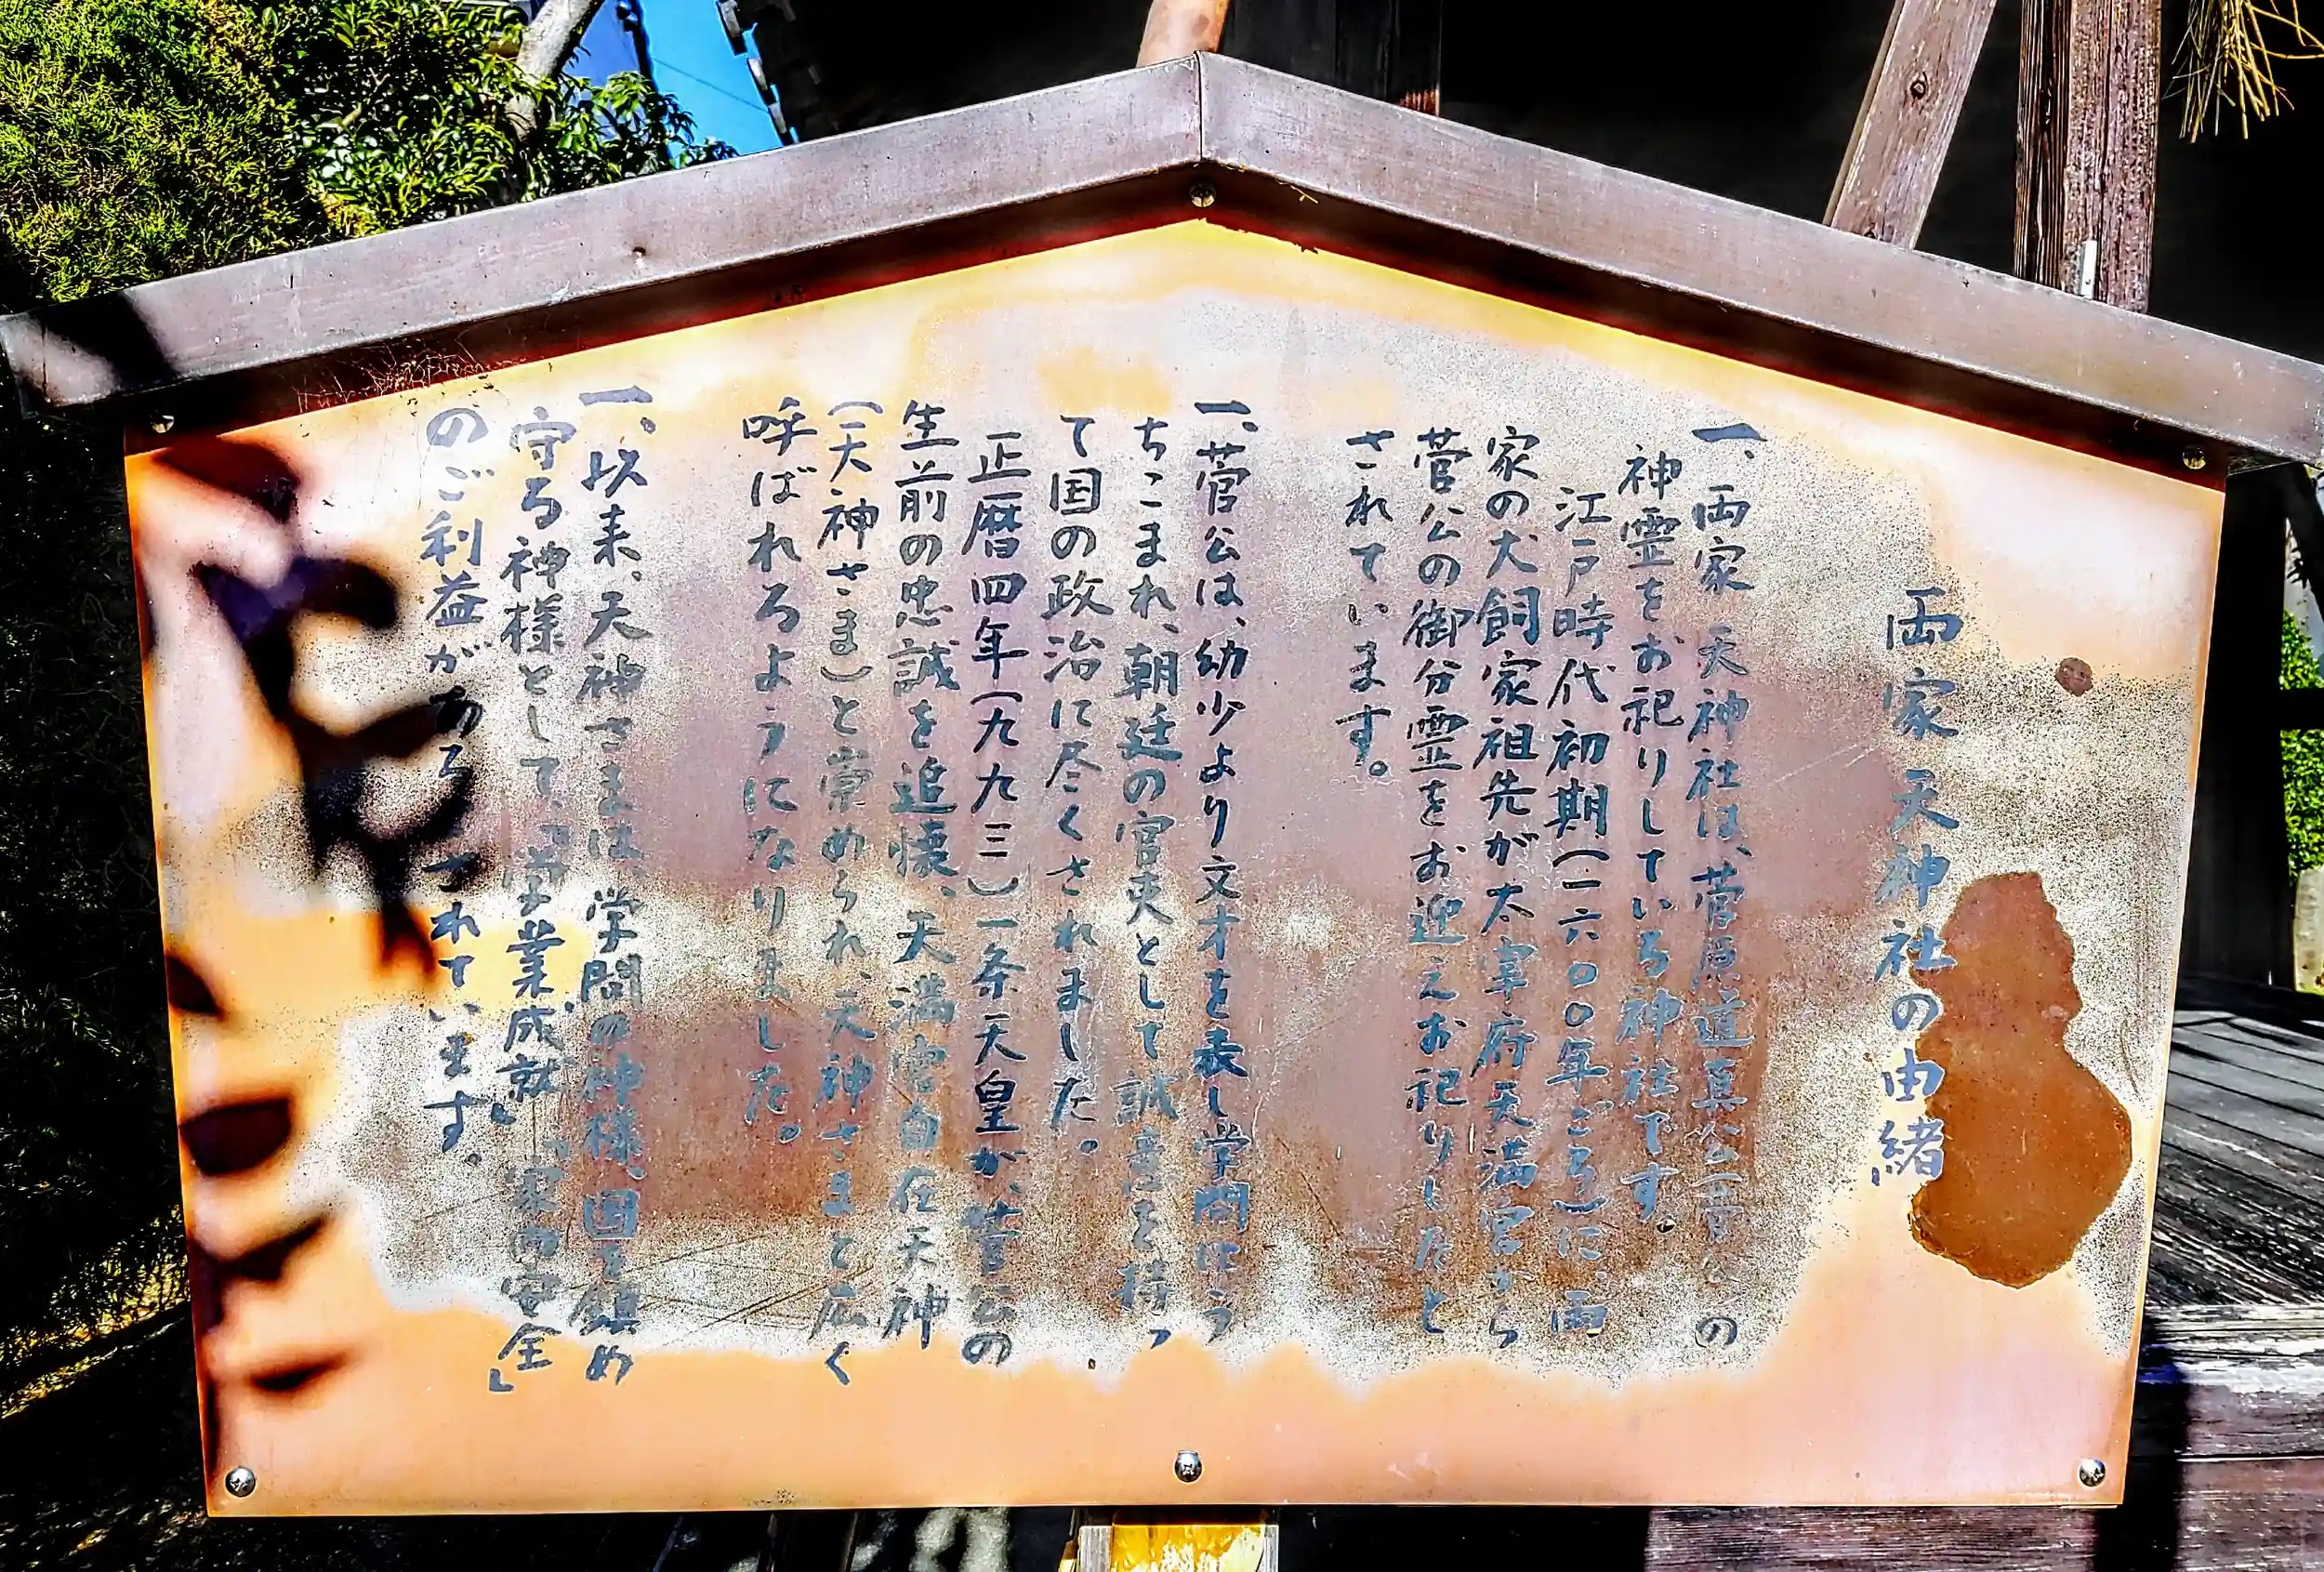 両家天神社の由緒
一、両家天神社は、菅原道真公(菅公)の
神霊をお祀りしている神社です。
江戸時代初期(一六〇〇年ごろ)に、両
家の犬飼家祖先が太宰府天満宮から
菅公の御分霊をお迎えお祀りしたと
されています。
一、菅公は、幼少より文才を表し学問にう
ちこまれ、朝廷の官吏として誠意を持っ
て国の政治に尽くされました。
正暦四年(九九三)一条天皇が、菅公の
生前の忠誠を追懐、天満宮自在天神
(天神さま)と崇められ、天神さまと広く
呼ばれるようになりました。
一、以来、天神さまは、学問の神様、国を鎮め
守る神様として、「学業成就」「家内安全」
のご利益があるされています。